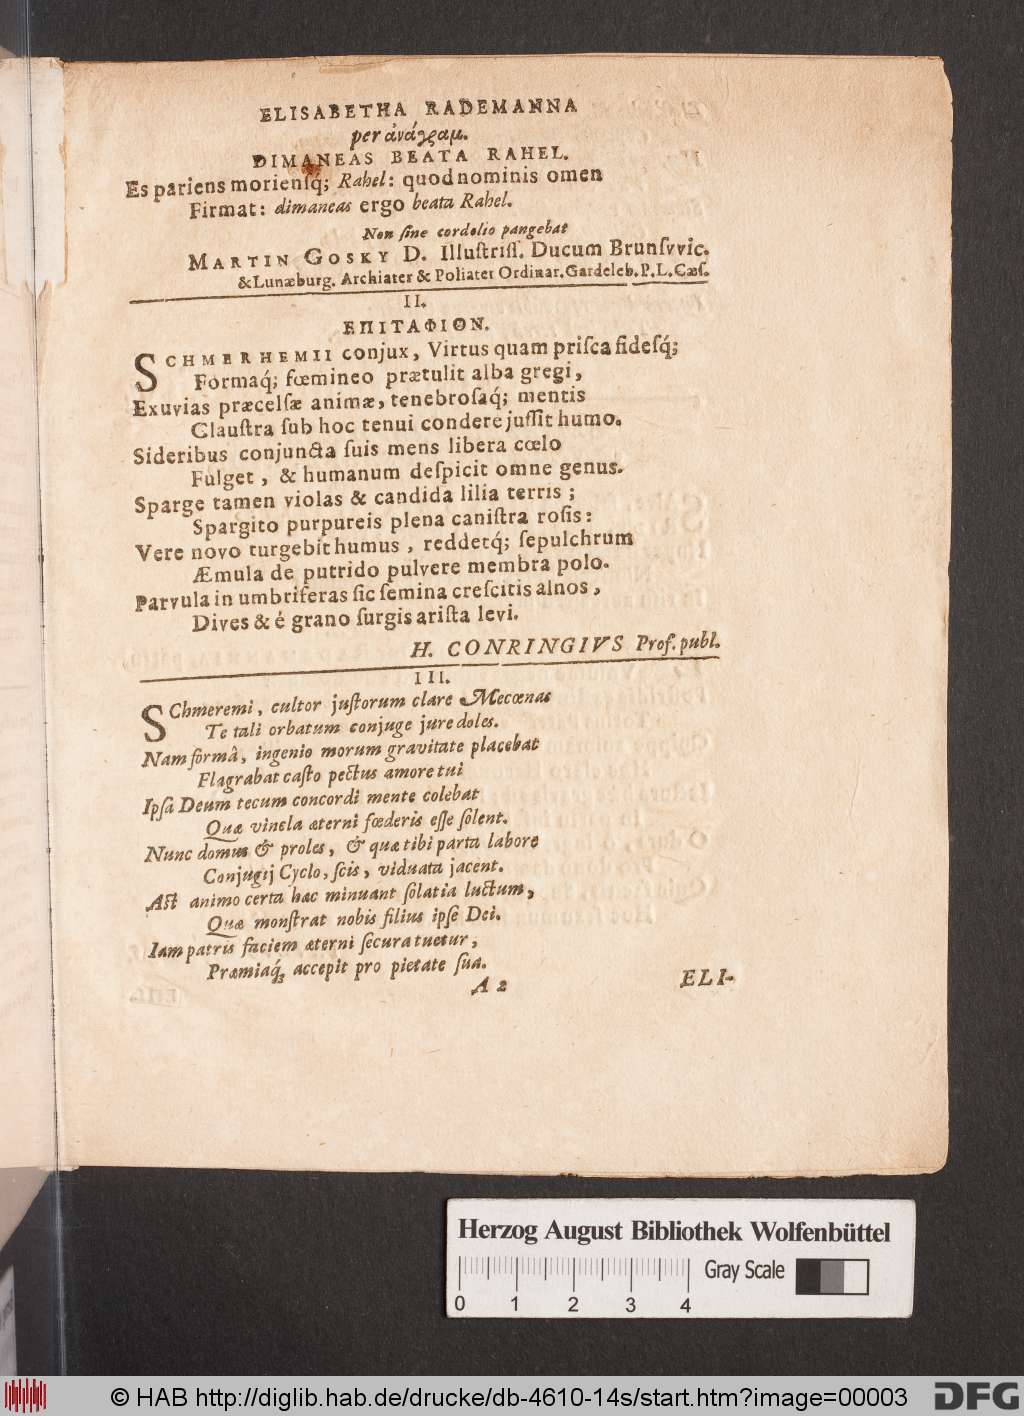 ELISABETHA RADEMANNA
per ἀνάγραμ.
DIMANEAS BEATA RAHEL.
Es pariens moriensq́; Rahel: quod nominis omen
Firmat: dimaneas ergo beata Rahel.
Non ſine cordolio pangebat
MARTIN GOSKY D. Illuſtriſſ. Ducum Brunſvvic.
& Lunæburg. Archiater & Poliater Ordinar. Gardeleb. P. L. Cæſ.
II.
ΕΠΙΤΑΦΙΟΝ.
SCHMERHEMII conjux, Virtus quam priſca fideſq́;
Formaq́; fœmineo prætulit alba gregi,
Exuvias præcelſæ animæ, tenebroſaq́; mentis
Clauſtra ſub hoc tenui condere juſſit humo.
Sideribus conjuncta ſuis mens libera cœlo
Fulget, & humanum deſpicit omne genus.
Sparge tamen violas & candida lilia terris;
Spargito purpureis plena caniſtra roſis:
Vere novo turgebit humus, reddetq́; ſepulchrum
Æmula de putrido pulvere membra polo.
Parvula in umbriferas ſic ſemina creſcitis alnos,
Dives & é grano ſurgis ariſta levi.
H. CONRINGIVS Prof. publ.
III.
SChmeremi, cultor juſtorum clare Mecœnas
Te tali orbatum conjuge jure doles.
Nam formâ, ingenio morum gravitate placebat
Flagrabat caſto pectus amore tui
Ipſa Deum tecum concordi mente colebat
Quæ vincla æterni fœderis eſſe ſolent.
Nunc domus & proles, & quæ tibi parta labore
Conjugij Cyclo, ſcis, viduata jacent.
Aſt animo certa hæc minuant ſolatia luctum,
Quæ monſtrat nobis filius ipſe Dei.
Iam patris faciem æterni ſecura tuetur,
Præmiaq́; accepit pro pietate ſua.
A 2
ELI-
Herzog August Bibliothek Wolfenbüttel
Gray Scale
0 1 2 3 4
© HAB http://diglib.hab.de/drucke/db-4610-14s/start.htm?image=00003
DFG